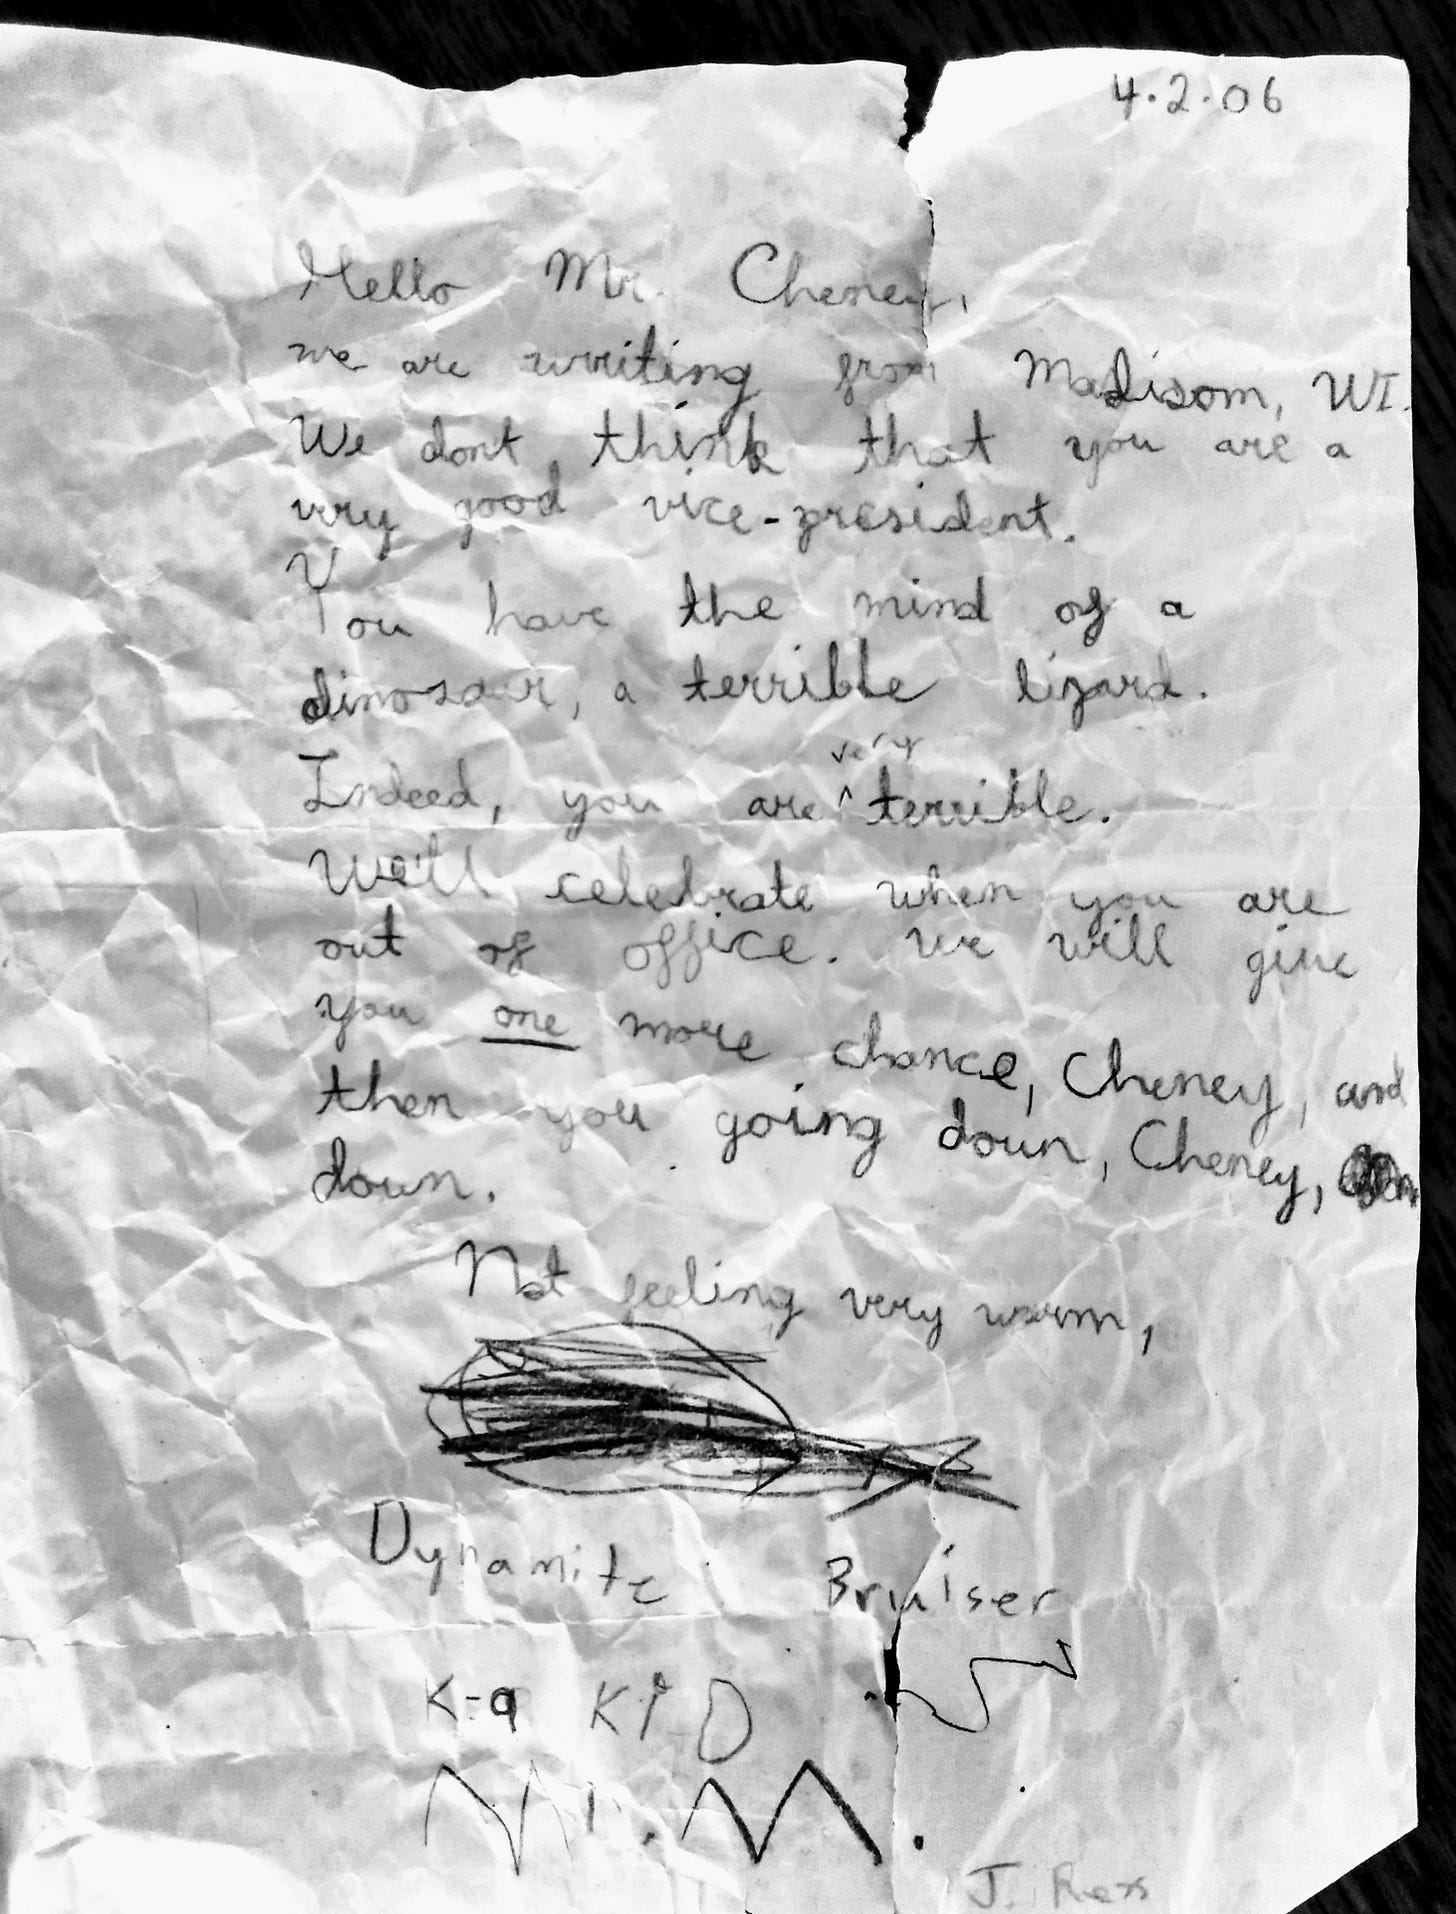 4.2.06
Hello Mr. Cheney,
we are writing from Madison, WI.
We dont think that you are a
very good vice-president.
You have the mind of a
dinosaur, a terrible lizard.
Indeed, you are ^ very terrible.
We'll celebrate when you are
out of office. We will give
you one more chance, Cheney, and
then you going down, Cheney,
down.
Not feeling very warm,
Dynamite Bruiser
K-9 KiD
Mr. M.
J. Rex